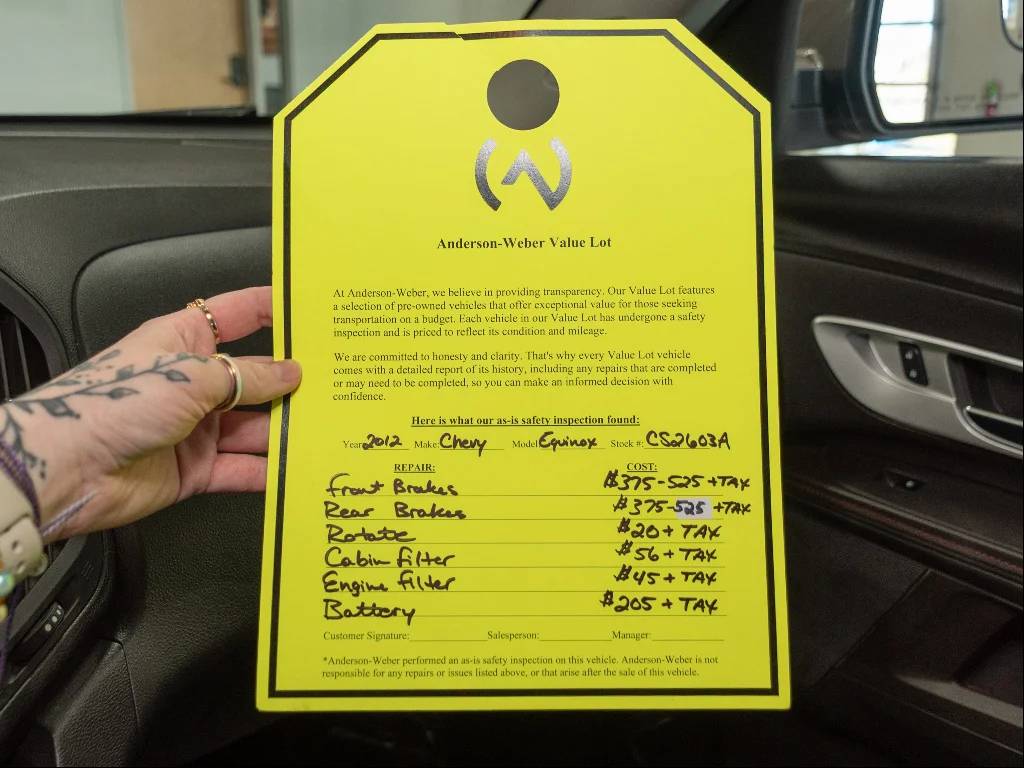 Anderson-Weber Value Lot
At Anderson-Weber, we believe in providing transparency. Our Value Lot features
a selection of pre-owned vehicles that offer exceptional value for those seeking
transportation on a budget. Each vehicle in our Value Lot has undergone a safety
inspection and is priced to reflect its condition and mileage.
We are committed to honesty and clarity. That's why every Value Lot vehicle
comes with a detailed report of its history, including any repairs that are completed
or may need to be completed, so you can make an informed decision with
confidence.
Here is what our as-is safety inspection found:
Year: 2012 Make: Chevy Model: Equinox Stock #: CS2603A
REPAIR: COST:
Front Brakes $375-525 +TAX
Rear Brakes $375-525 +TAX
Rotate $20 + TAX
Cabin filter $56 + TAX
Engine filter $45 + TAX
Battery $205 + TAX
Customer Signature: Salesperson: Manager:
*Anderson-Weber performed an as-is safety inspection on this vehicle. Anderson-Weber is not
responsible for any repairs or issues listed above, or that arise after the sale of this vehicle.